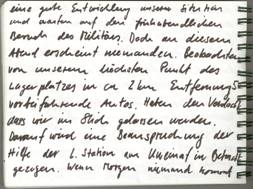 eine gute Entwicklung unserer Situation
und warten auf den frühabendlichen
Besuch des Militärs. Doch an diesem
Abend erscheint niemanden. Beobachten
von unserem höchsten Punkt des
Lagerplatzes in ca 2 km Entfernung
vorbeifahrende Autos. Haben den Verdacht
dass wir im Stich gelassen werden.
Darauf wird eine Beanspruchung der
Hilfe der L. Station am Uneinaf in Betracht
gezogen. Wenn morgen niemand kommt